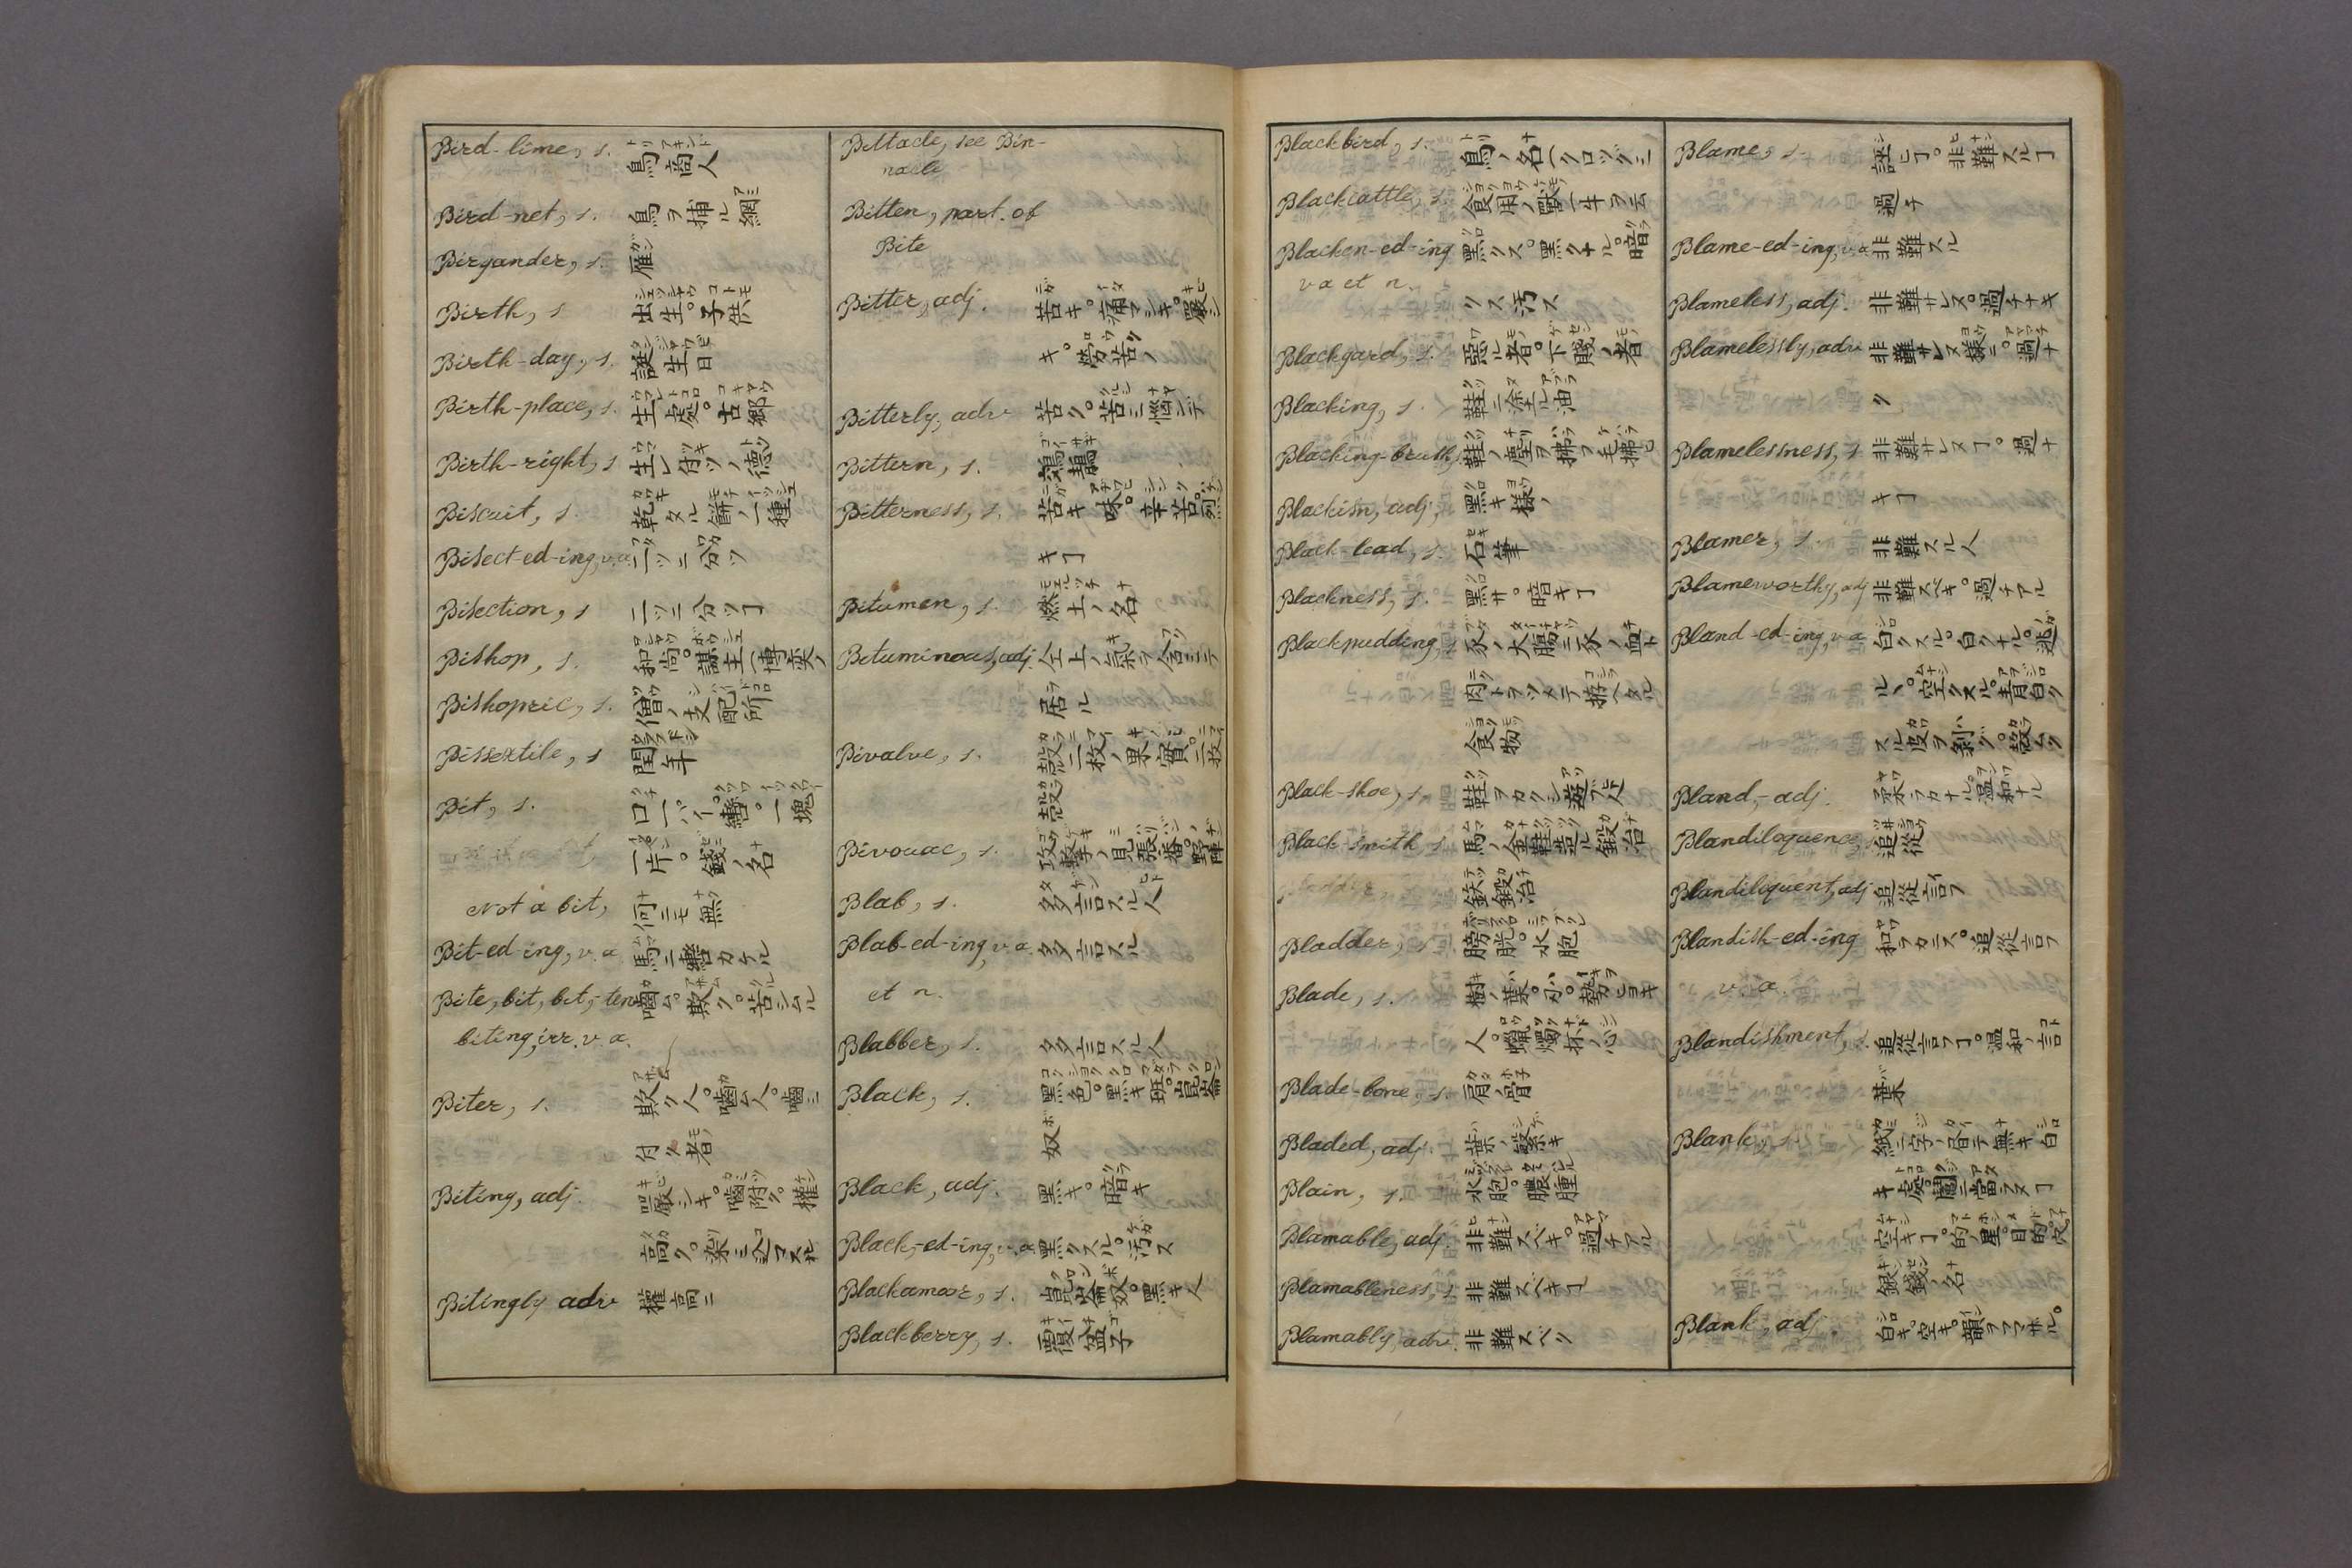 Bird-lime, s. 鳥商人
Bird-net, s. 鳥ヲ捕ル網
Birgander, s. 雁
Birth, s 出生。子供
Birth-day, s. 誕生日
Birth-place, s. 生レ處。古郷
Birth-right, s 生レ付ツノ德
Biscuit, s. 乾タル餅ノ一種
Bisect-ed-ing, v.a. 二ツニ分ツ
Bisection, s 二ツニ分ツヿ
Bishop, s. 和尚。
Bishopric, s. 僧ノ支配所
Bissextile, s 閏年
Bit, s. 口一パイ。轡。一塊
一片。錢ノ名
Not a bit, 何ニモ無
Bit-ed-ing, v.a 馬ニ轡カケル
Bite, bit, bit,-ten 嚙ム。欺ク。苦シムル
biting, irr. v.a.
Biter, s. 欺ク人。嚙ム人。嚙ミ
付ク者
Biting, adj. 嚴シキ。嚙附ク。權
高ク。
Bitingly adv 權高ニ
Bittacle, see Bin-
nacle
Bitten, part. of
Bite
Bitter, adj. 苦キ。痛マシキ。嚴シ
キ。勞苦ノ
Bitterly, adv 苦ク。苦ミ惱ンデ
Bittern, s.
Bitterness, s. 苦キ味。辛苦。烈
キヿ
Bitumen, s. 燃土ノ名
Bituminous, adj. 仝上ノ氣ヲ含ミテ
居ル
Bivalve, s. 殼二枚ノ果實。二枚
殼
Bivouac, s. 攻擊ノ見張番。野陣
Blab, s. 多言スル人
Blab-ed-ing, v.a. 多言スル
et n.
Blabber, s. 多言スル人
Black, s. 黑色。黑キ斑。崑崙
奴
Black, adj. 黑キ。暗キ
Black,-ed-ing, v.a 黑クスル。汚ス
Blackamoor, s. 崑崙奴。黑キ人
Blackberry, s. 覆盆子
Blackbird, s. 鳥ノ名(クロツグミ
Blackcattle, s. 食用ノ獸(牛ヲ云
Blacken-ed-ing 黑クス。黑クナル。暗
v a et n. クス汚ス
Blackgard, s. 惡ル者。下賤ノ者
Blacking, s. 鞋ニ塗ル油
Blacking-brush, 鞋ノ塵ヲ拂フ毛拂
Blackish, adj, 黑キ樣ノ
Black-lead, s. 石筆
Blackness, s. 黑サ。暗キヿ
Blackpudding, s. 豕ノ大腸ニ豕ノ血ト
肉トヲツメテ拵ヘタル
食物
Black-shoe, s.
Black-smith, s. 馬ノ金鞋造ル鍛冶
鉄鍛冶
Bladder, s. 膀胱。水胞
Blade, s. 樹ノ葉。
人。蠟燭抔ノ心
Blade-bone, s. 肩ノ骨
Bladed, adj. 葉ノ繁キ
Blain, s. 水胞。膿腫
Blamable, adj. 非難スベキ。過チアル
Blamableness, s. 非難スベキヿ
Blamably, adv. 非難スベク
Blame, s. 誣ヒヿ。非難スルヿ
過チ
Blame-ed-ing, v.a 非難スル
Blameless, adj. 非難サレヌ。過チナキ
Blamelessly, adv 非難サレヌ樣ニ。過ナ
ク
Blamelessness, s 非難サレヌヿ。過ナ
キヿ
Blamer, s. 非難スル人
Blameworthy, adj 非難スベキ。過チアル
Bland-ed-ing, v.a 白クスル。白クナル。逃
ルヽ。空クスル。青白ク
スル皮ヲ剝グ。殼ムク
Bland,-adj. 柔ラカナル。溫和ナル
Blandiloquence, s 追從
Blandiloquent, adj 追從言フ
Blandish-ed-ing 和ラカニス。追從言フ
v. a.
Blandishment, s. 追從言フヿ。溫和ノ言
葉
Blank, s. 紙ニ字ノ書テ無キ白
キ處。鬮ニ當ラヌヿ
空キヿ。的ノ星。目的。
銀錢ノ名
Blank, adj. 白キ。空キ。韻ヲフマザル。